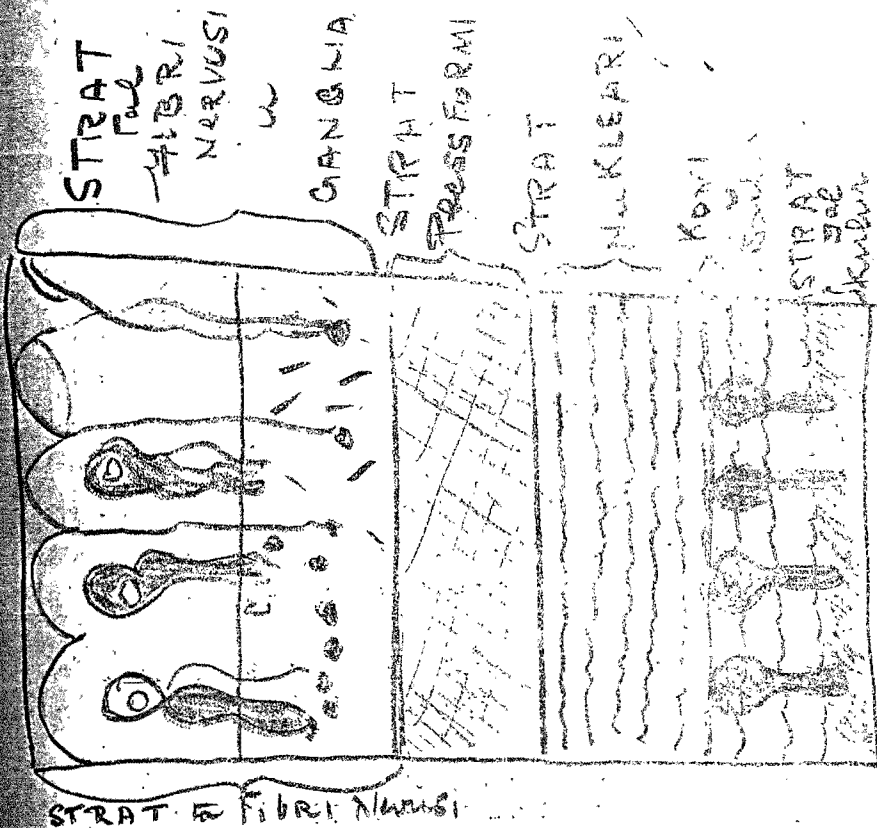 STRAT
tal
FIBRI
NERVUSI
u
GANGLIA
STRAT
STRAT
NUKLEARI
KONI
u
STRAT
STRAT ta FIBRI Nervusi